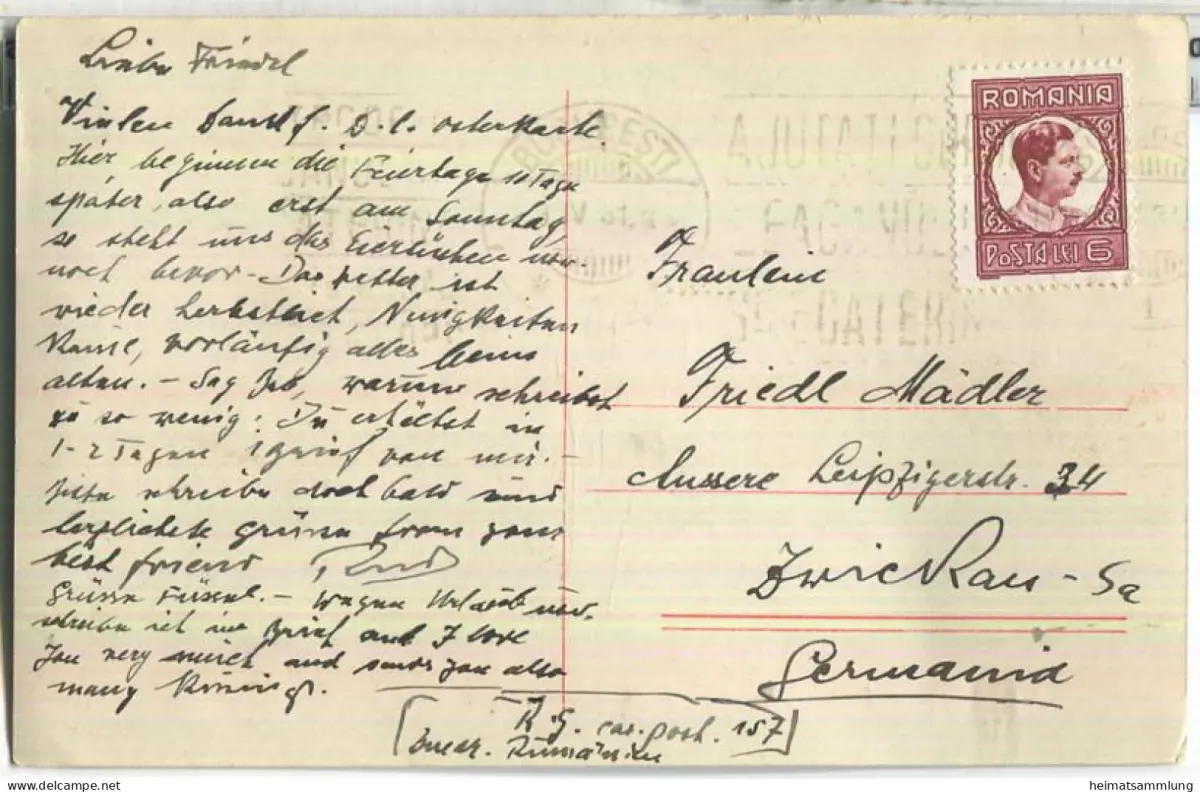 Liebe Friedel
Vielen Dank f. D. l. Osterkarte.
Hier beginnen die Feiertage 10 Tage
später, also erst am Sonntag,
so steht uns das
noch bevor. - Das Wetter ist
wieder herbstlich, Neuigkeiten
keine, vorläufig alles beim
alten. - Sag Heb, warum schreibst
Du so wenig? Du erhältst in
1-2 Tagen 1 Brief von mir. -
Bitte schreibe doch bald und
herzlichste Grüsse from your
best friend Rudi
Grüsse - wegen Urlaub usw.
schreibe ich im Brief and I love
you very much and sends you also
many
R. G. cas. post. 157
Bucar. Rumänien
ROMANIA
POSTA LEI 6
BUCUREST
Fraulein
Friedl Mädler
Aussere Leipzigerstr. 34
Zwickau - Sa
Germania
heimatsammlung